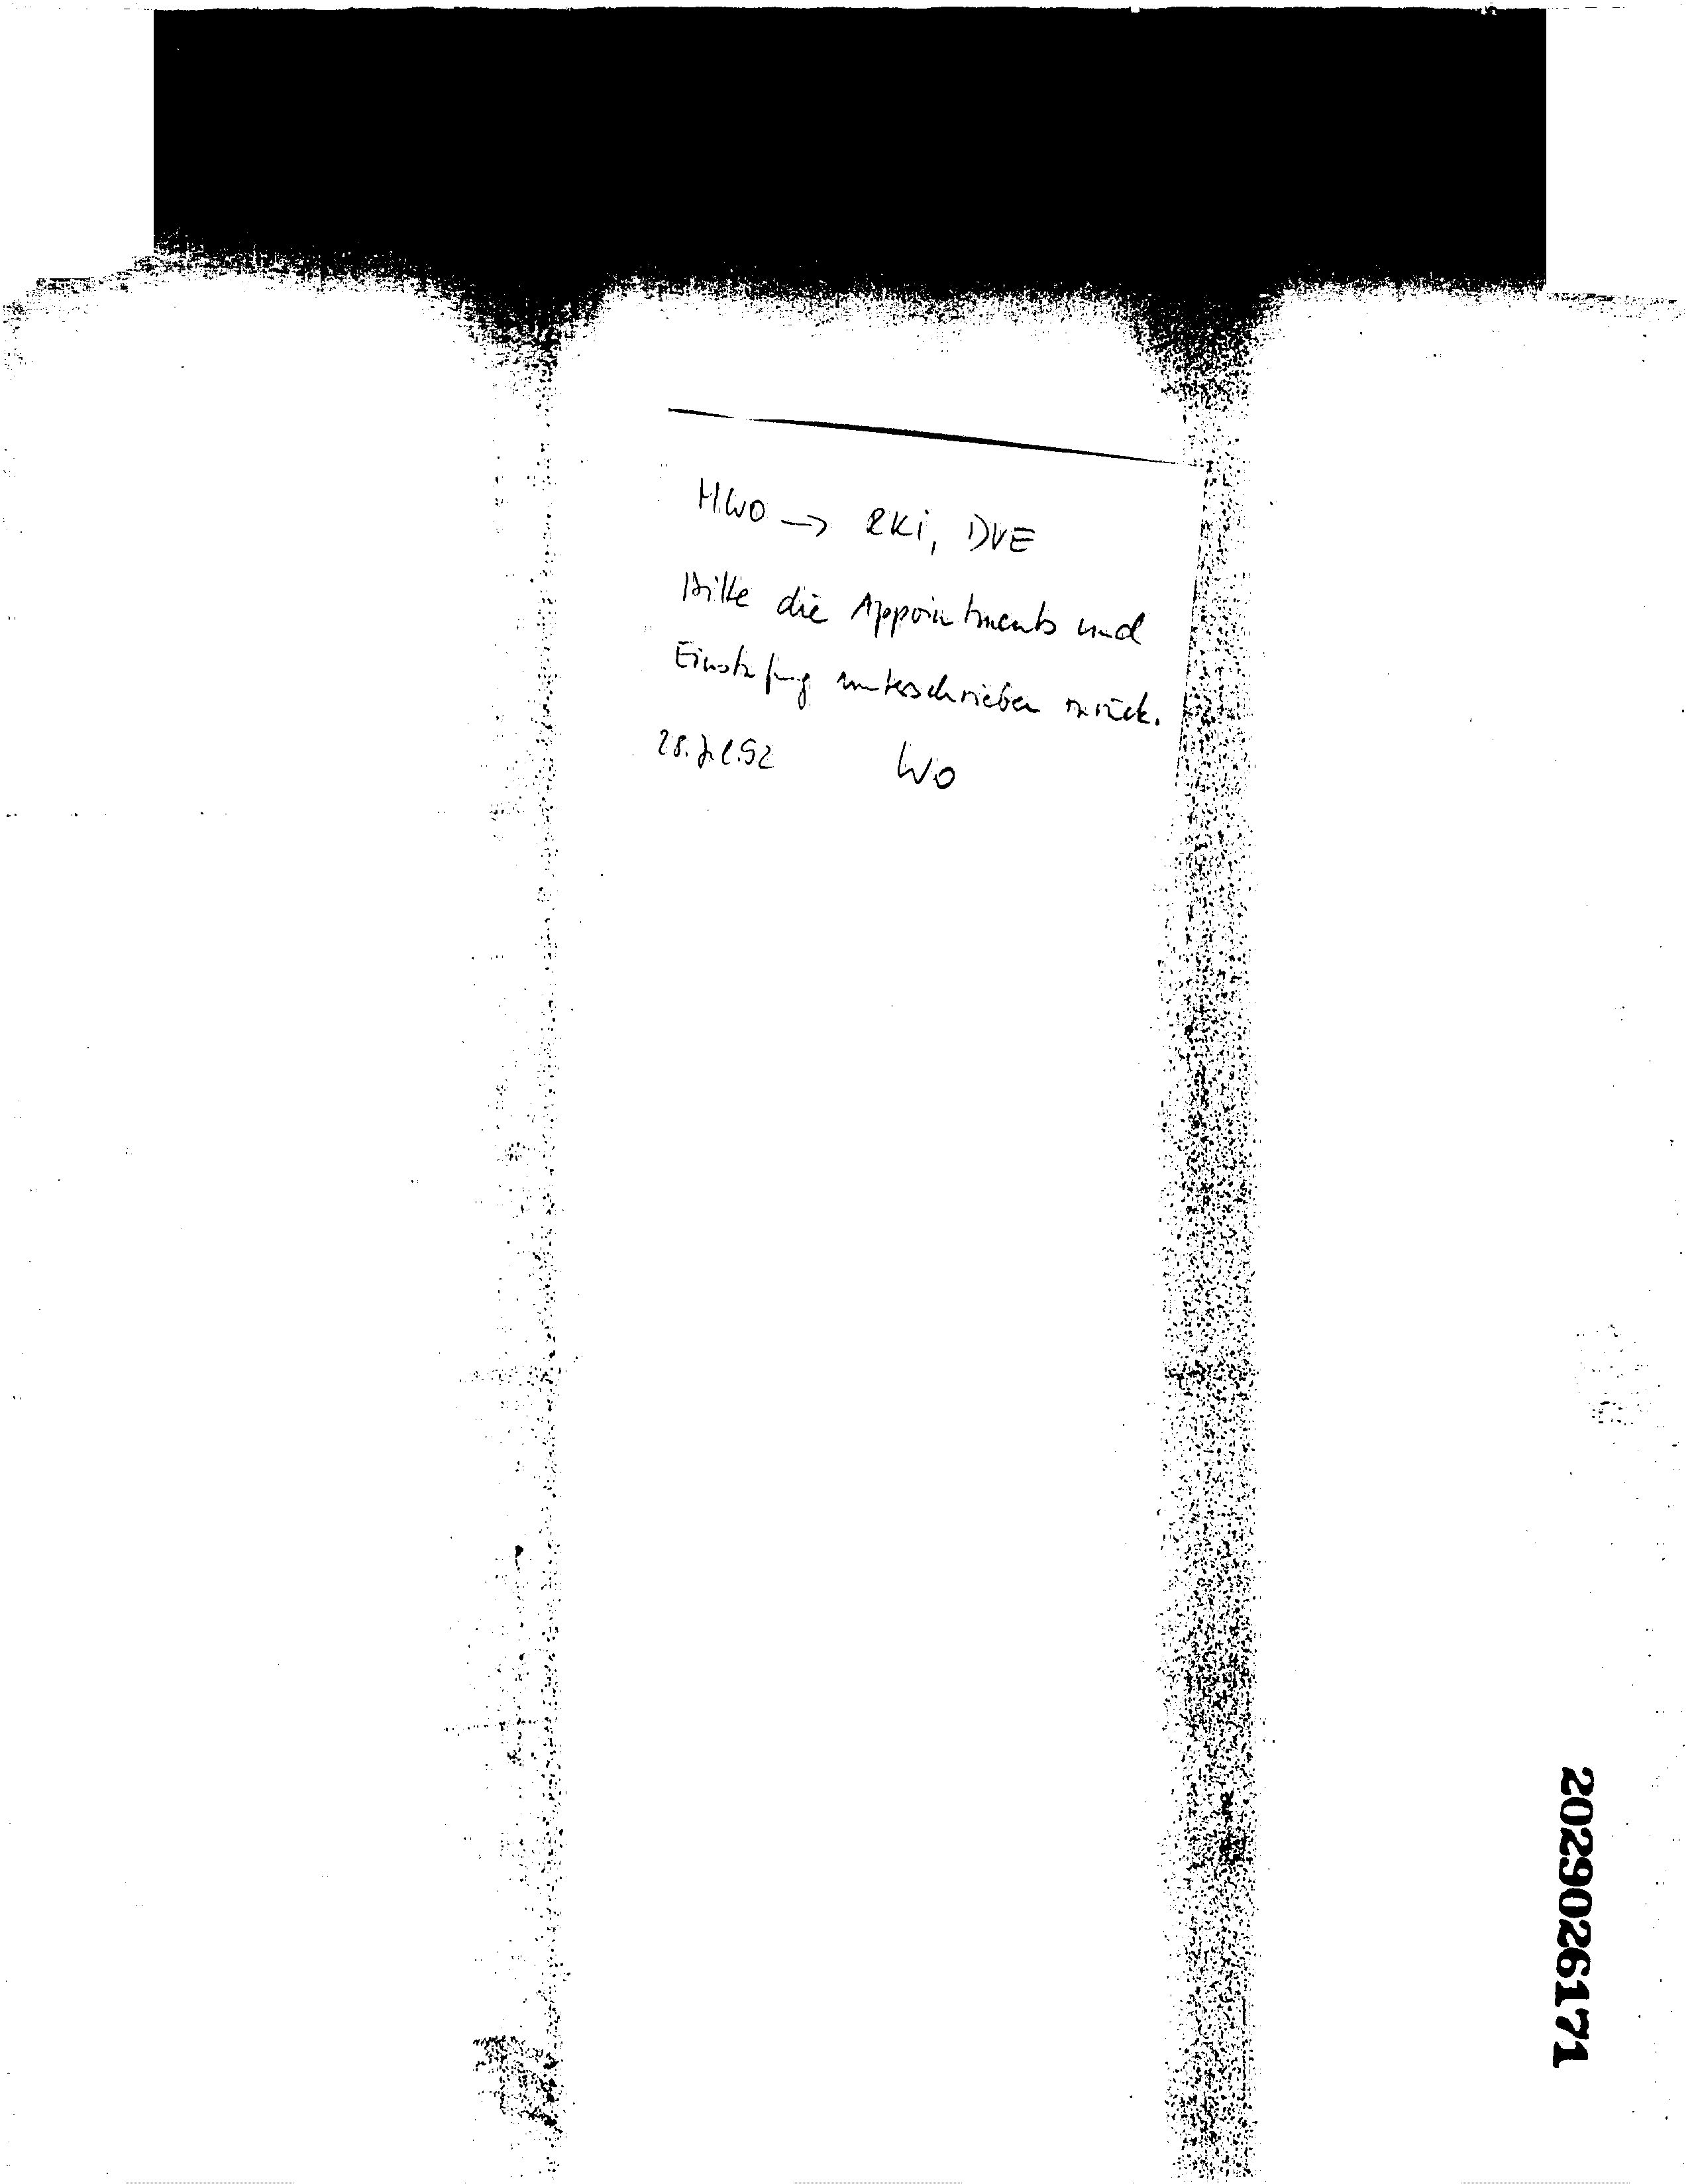 HWO → RKi, DVE
Bitte die Appointments und
Einstufung unterschrieben zurück.
28. Jul. 92 Wo
2029026171